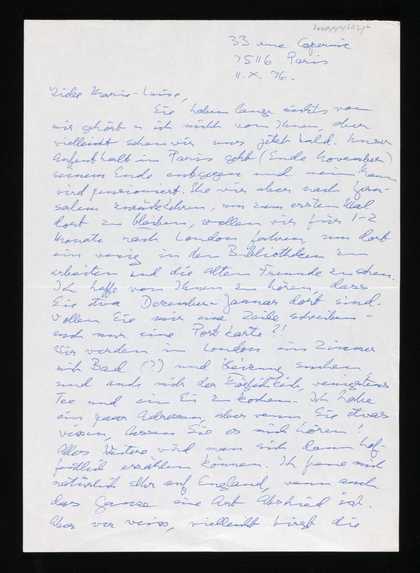 33 rue Copernic
75116 Paris
11.X.76.
Liebe Marie-Luise,
Sie haben lange nichts von
mir gehört u ich nicht von Ihnen, aber
vielleicht sehen wir uns jetzt bald. Unser
Aufenthalt in Paris geht (Ende November)
seinem Ende entgegen und mein Mann
wird pensioniert. Ehe wir aber nach Jeru-
salem zurückkehren, um zum ersten Mal
dort zu bleiben, wollen wir für 1-2
Monate nach London fahren, um dort
ein wenig in den Bibliotheken zu
arbeiten und die alten Freunde zu sehen.
Ich hoffe von Ihnen zu hören, dass
Sie etwa Dezember-Januar dort sind.
Wollen Sie mir eine Zeile schreiben -
auch nur eine Postkarte?!
Wir werden in London ein Zimmer
mit Bad (?) und Heizung suchen
und auch mit der Möglichkeit wenigstens
Tee und ein Ei zu kochen. Ich habe
ein paar Adressen, aber wenn Sie etwas
wissen, lassen Sie es mich hören!
Alles Weitere wird man sich dann hof-
fentlich erzählen können. Ich freue mich
natürlich sehr auf England, wenn auch
das Ganze eine Art Abschied ist.
Aber wer weiss, vielleicht die